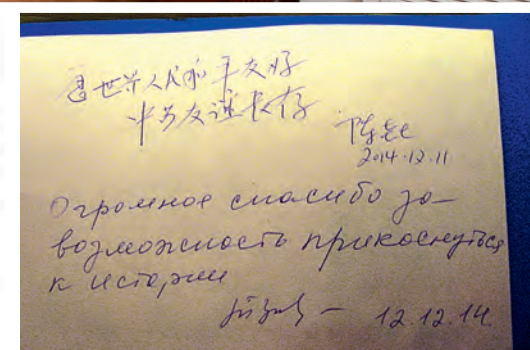 世界人民和平友好
中苏友谊长存
2014.12.11
Огромное спасибо за
возможность прикоснуться
к истории
12.12.14.